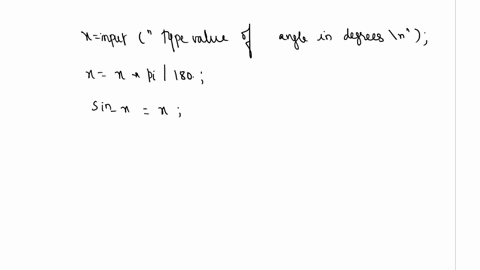 x=input (" type value of angle in degrees \n");
x= x * pi / 180 ;
sin_x = x ;